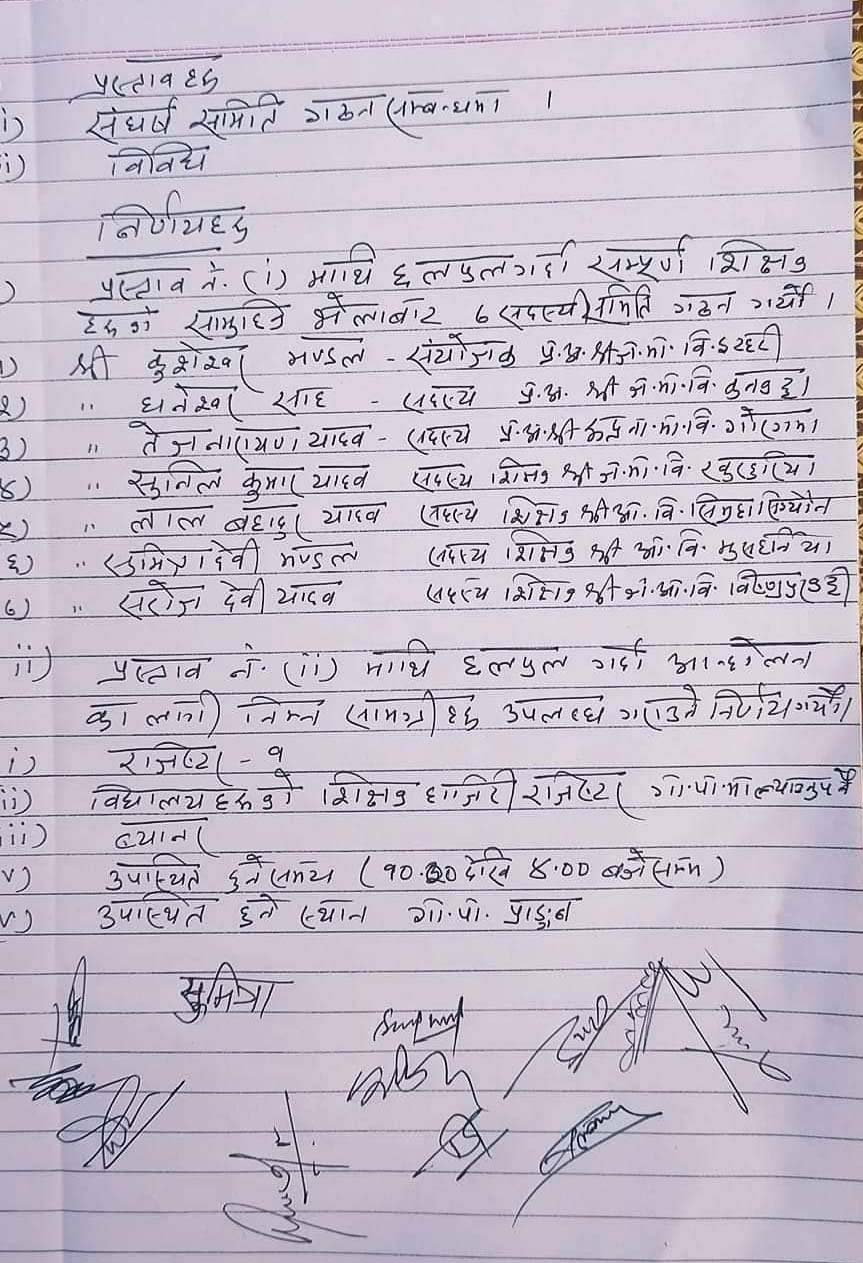 प्रस्तावहरु
i) संघर्ष समिति गठन सम्बन्धमा ।
i) विविध
निर्णयहरु
) प्रस्ताव नं. (i) माथि छलफल गर्दा सम्पूर्ण शिक्षक
हरुको सामुहिक भेलाबाट ७ सदस्यीय समिति गठन गर्यौ ।
१) श्री कुशेश्वर मण्डल - संयोजक प्र.अ. श्री जे.मा.वि. इटहरी
२) " धनेश्वर साह - सदस्य प्र.अ. श्री ने.मा.वि.
३) " तेजनारायण यादव - सदस्य प्र.अ. श्री मा.वि.
४) " सुनिल कुमार यादव सदस्य शिक्षक श्री ने.मा.वि.
५) " लाल बहादुर यादव सदस्य शिक्षक श्री आ.वि.
६) " सुमित्रा देवी मण्डल सदस्य शिक्षक श्री आ.वि. मुसहर्निया
७) " सरोज देवी यादव सदस्य शिक्षक श्री ने.आ.वि.
ii) प्रस्ताव नं. (ii) माथि छलफल गर्दा आन्दोलन
का लागी निम्न सामग्रीहरु उपलब्ध गराउने निर्णय गर्यौ।
i) रजिष्टर - १
ii) विद्यालयहरुको शिक्षक हाजिरी रजिष्टर गा.पा.मा ल्याउनुपर्ने
iii) ब्यानर
v) उपस्थित हुने समय (१०.३० देखि ४.०० बजे सम्म)
v) उपस्थित हुने स्थान गा.पा. प्राङ्गन
सुमित्रा